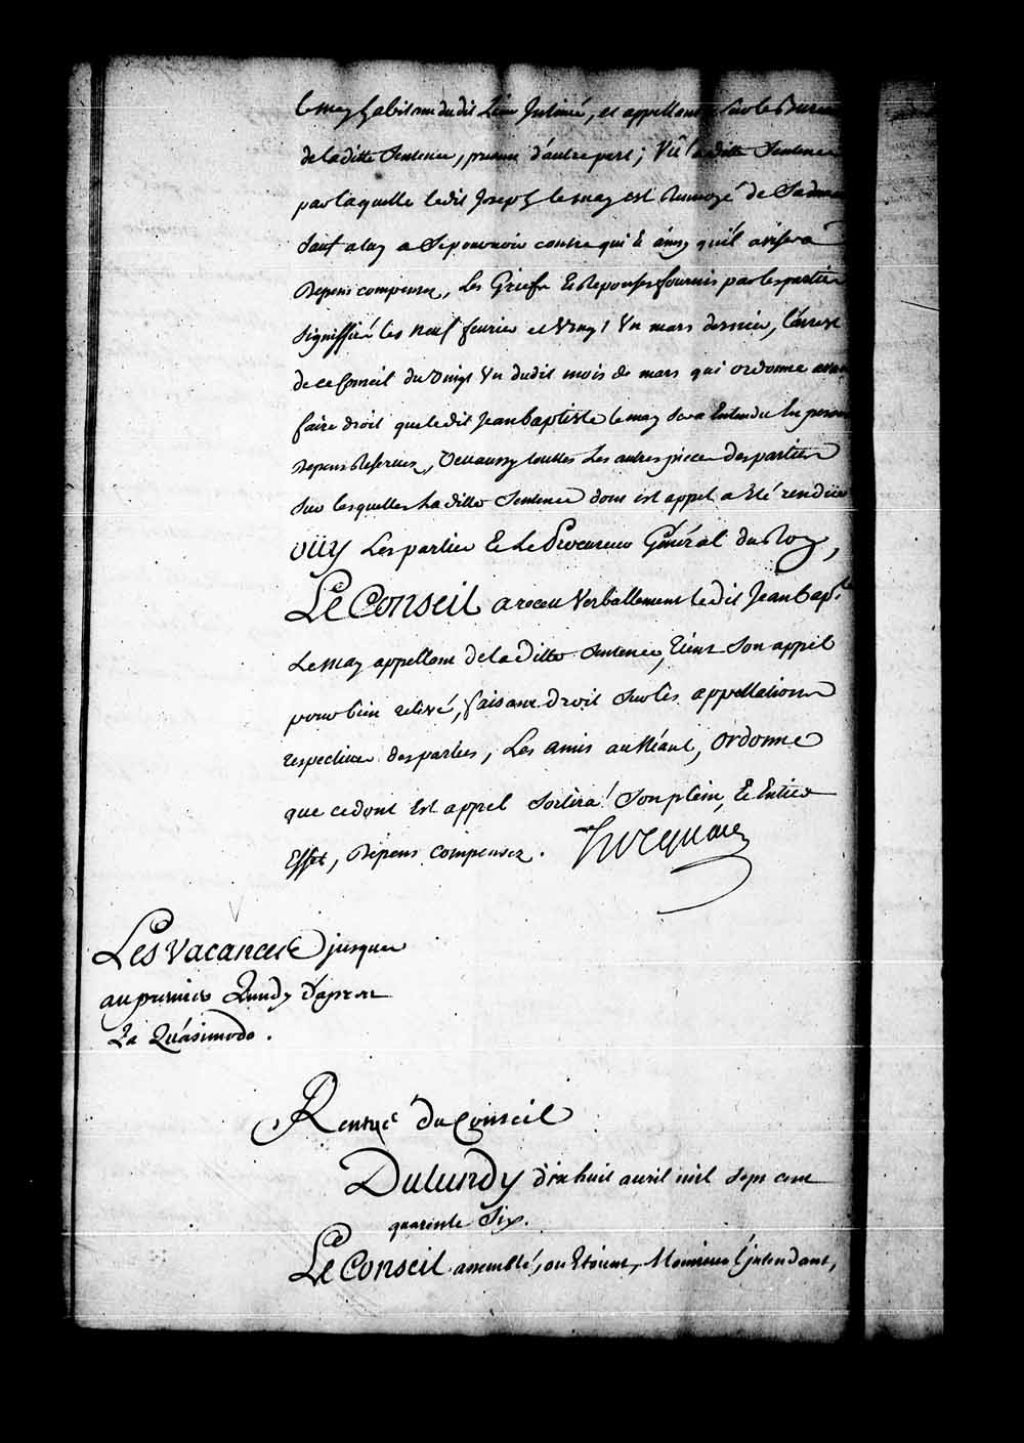 lemay habitant dudit Lieu Intimé, et appellant sur le Bureau
de laditte Sentence, present d'autre part; Vû laditte Sentence
par laquelle ledit Joseph lemay est Renvoyé de Sa
Sauf a luy a Se pourvoir contre qui Et ainsy qu'il avisera
Depens compensez, Les Griefs Et Reponses fournis par les parties
Signiffiés les neuf fevrier et Vingt Un mars dernier, l'arrest
de ce Conseil du Vingt Un dudit mois de mars qui ordonne avant
faire droit que ledit Jean baptiste lemay Sera Entendu En personne
Depens Reservez, Veu aussy touttes Les autres pieces des parties
Sur lesquelles La ditte Sentence dont est appel a Eté rendüe
OÜY Les parties Et Le Procureur Général du Roy,
Le Conseil a receu Verballement ledit Jean Bapte
Lemay appellant de la ditte Sentence, Tient Son appel
pour bien relevé, faisant droit Sur les appellations
respectives des parties, Les a mis au Néant, ordonne
que ce dont Est appel Sortira Son plein, Et Entier
Effet, Dépens compensez. Hocquart
Les Vacances jusques
au premier Lundy d'apres
La Quásimodo.
Rentrée du Conseil
Du Lundy dix huit avril mil Sept cent
quarente Six.
Le Conseil assemblé, ou Etoient, Monsieur L'intendant,